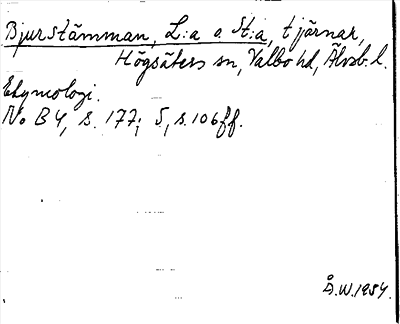 Bjurstämman, L:a o St:a, tjärnar,
Högsäters sn, Valbo hd, Älvsb. l.
Etymologi.
No B 4, s. 177; 5, s. 106 ff.
Å.W.1954.